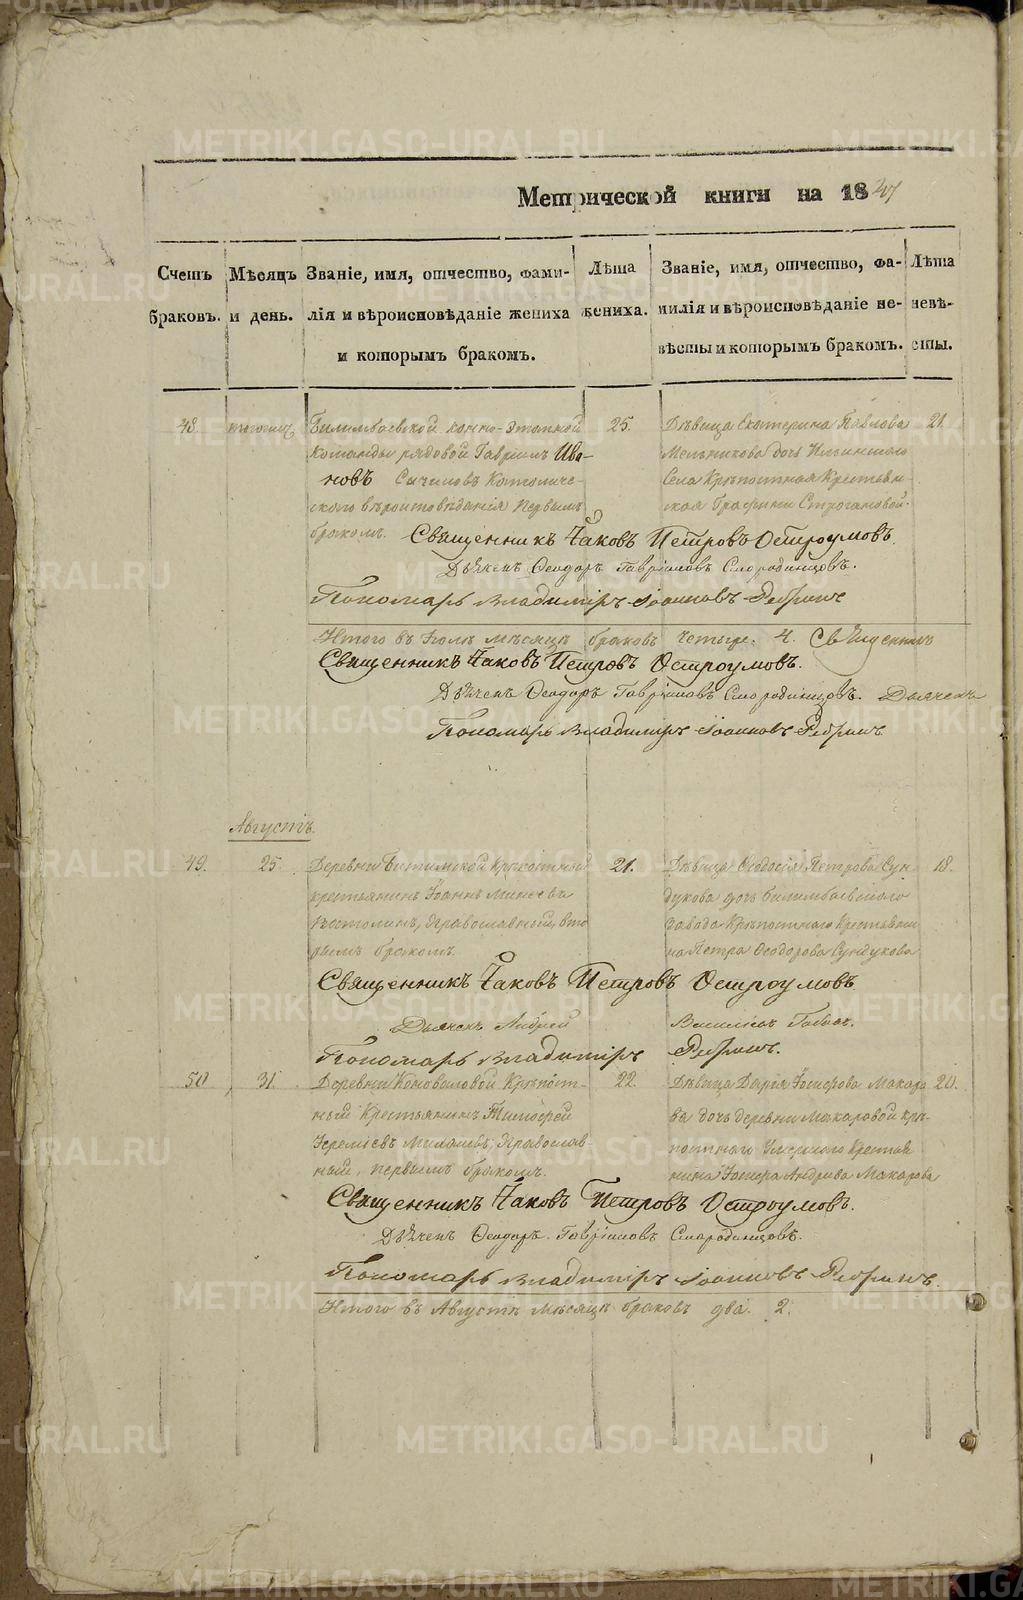 Метрической книги на 18
Счетъ браковъ.
Мѣсяцъ и день.
Званіе, имя, отчество, фами-
лія и вѣроисповѣданіе жениха
и которымъ бракомъ.
Лѣта
жениха.
Званіе, имя, отчество, фа-
милія и вѣроисповѣданіе не-
вѣсты и которымъ бракомъ.
Лѣта
невѣ-
сты.
48.
Билимбаевской конно-этапной
команды рядовой Гавріилъ Ива-
новъ Католиче-
скаго вѣроисповѣданія первымъ
бракомъ.
25.
Дѣвица Екатерина Павлова
Мельникова дочь Ильинскаго
села Крѣпостная Крестьян-
ская Графини Строгановой.
21.
Священникъ Іаковъ Петровъ Остроумовъ
Дьячекъ Ѳеодоръ Гавріиловъ Смородинцовъ.
Пономарь Владиміръ Іоанновъ Ребринъ
Итого въ Іюлѣ мѣсяцѣ браковъ четыре. 4.
Священникъ Іаковъ Петровъ Остроумовъ.
Дьячекъ Ѳеодоръ Гавріиловъ Смородинцовъ. Дьячекъ
Пономарь Владиміръ Іоанновъ Ребринъ
Августъ.
49.
25.
Деревни Битимской Крѣпостный
крестьянинъ Іоаннъ Минеевъ
Православный, вто-
рымъ бракомъ.
21.
Дѣвица Ѳеодосія Петрова Сун-
дукова дочь Билимбаевскаго
завода Крѣпостнаго Крестьяни-
на Петра Ѳеодорова Сундукова
18.
Священникъ Іаковъ Петровъ Остроумовъ
Дьячекъ Андрей
Пономарь Владиміръ Ребринъ.
50
31.
Деревни Коноваловой Крѣпост-
ный Крестьянинъ Тимоѳей
Іереміевъ Православ-
ный, первымъ бракомъ.
22.
Дѣвица Дарія Макаро-
ва дочь деревни Макаровой крѣ-
постнаго Умершаго Крестья-
нина Андреева Макарова
20.
Священникъ Іаковъ Петровъ Остроумовъ.
Дьячекъ Ѳеодоръ Гавріиловъ Смородинцовъ.
Пономарь Владиміръ Іоанновъ Ребринъ.
Итого въ Августѣ мѣсяцѣ браковъ два. 2.
METRIKI.GASO-URAL.RU